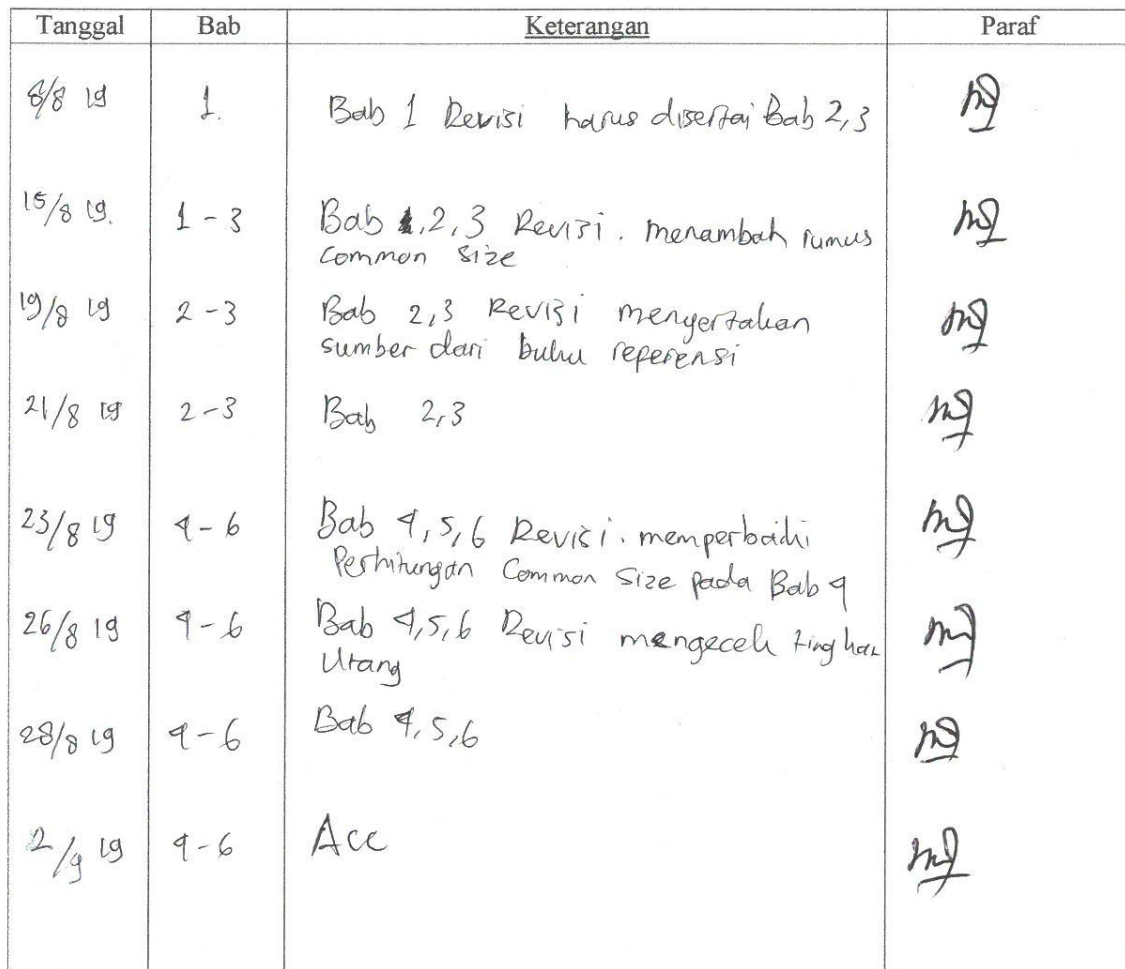 Tanggal Bab Keterangan Paraf
8/8 19 1. Bab 1 Revisi harus disertai Bab 2,3
15/8 19. 1 - 3 Bab 1,2,3 Revisi. menambah rumus
common size
19/8 19 2 - 3 Bab 2,3 Revisi menyertakan
sumber dari buku referensi
21/8 19 2 - 3 Bab 2,3
23/8 19 4 - 6 Bab 4,5,6 Revisi. memperbaiki
Perhitungan Common Size pada Bab 4
26/8 19 4 - 6 Bab 4,5,6 Revisi mengecek tingkat
Utang
28/8 19 4 - 6 Bab 4,5,6
2/9 19 4 - 6 Acc